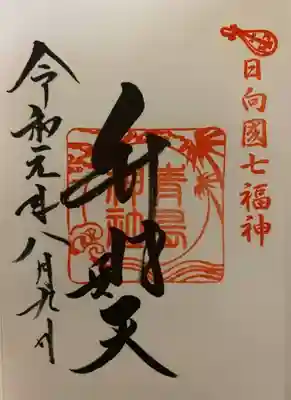 日向國七福神
弁財天
青島
神社
令和元年八月九日